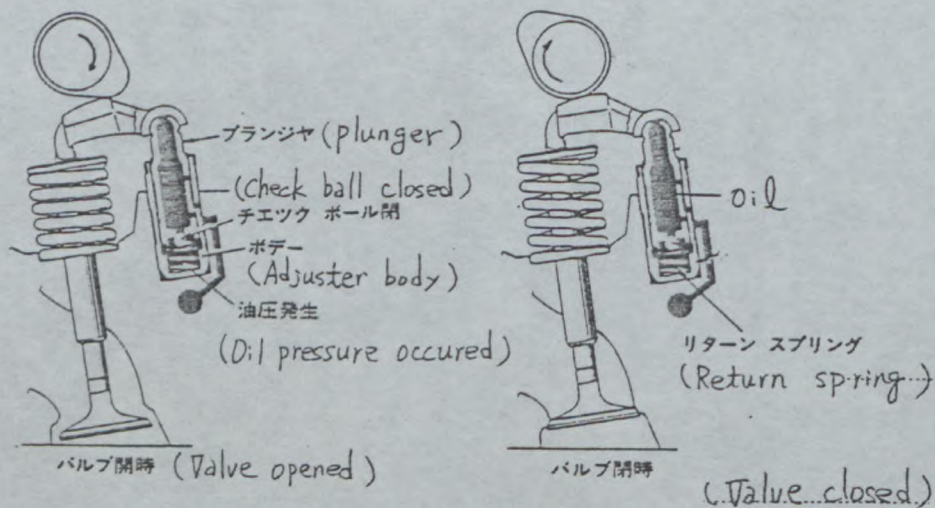 プランジャ (plunger)
(Check ball closed)
チエツク ボール閉
ボデー
(Adjuster body)
油圧発生
(Oil pressure occured)
バルブ開時 (Valve opened)
oil
リターン スプリング
(Return spring)
バルブ閉時
(Valve closed)